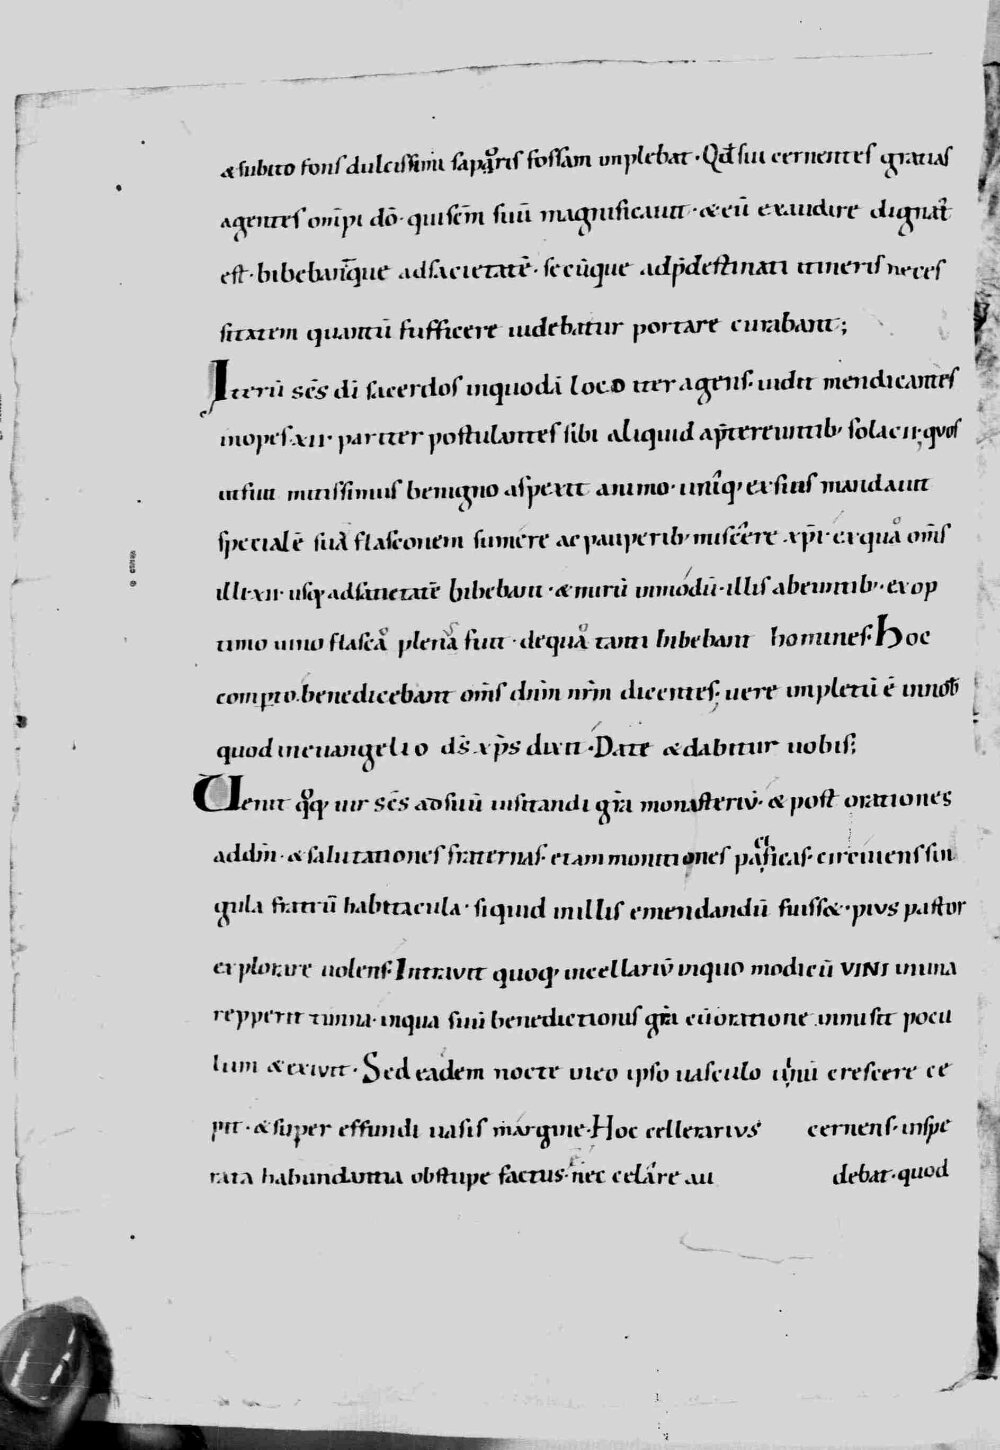 & subito fons dulcissimi saporis fossam inplebat · Qd̄ sui cernentes gratias
agentes om̄pi dō · qui sēm suū magnificauit · & eū exaudire dignat᷑
est · bibeban̄tque ad sacietatē · secūque ad p̄destinati itineris neces
sitatem quantū sufficere uidebatur portare curabant;
Iterū sēs dī sacerdos in quodā loco iter agens · uidit mendicantes
inopes · xii · pariter postulantes sibi aliquid a p̄tereuntib; solacii; quos
ut suit mitissimus benigno aspexit animo · uniq; ex suis mandauit
specialē suā flasconem sumere ac pauperib; miscere xp̄i · ex qua om̄s
illi · xii · usq; ad satietatē bibebant · & mirū in modū · illis abeuntib; · ex op
timo uino flasca plena fuit · de qua tanti bibebant homines · Hoc
comp̱to · benedicebant om̄s dn̄m nr̄m dicentes; uere inpletū ē in nob̄
quod in euangelio ds̄ xp̄s dixit · Date & dabitur uobis;
Uenit qoq; uir sēs ad suū uisitandi gr̄a monasteriū · & post orationes
ad dn̄m · & salutationes fraternas · etam monitiones pacificas · circuiens sin
gula fratrū habitacula · si quid in illis emendandū fuiss& · pius pastor
explorare uolens · Intrauit quoq; in cellariū in quo modicū VINI in una
repperit tunna · in qua sui benedictionis gr̄a cū oratione inmisit pocu
lum & exiuit · Sed eadem nocte uico ipso uasculo uinū crescere ce
pit · & super effundi uasis margine · Hoc cellerarius cernens · inspe
rata habundantia obstupe factus · nec celare au debat · quod